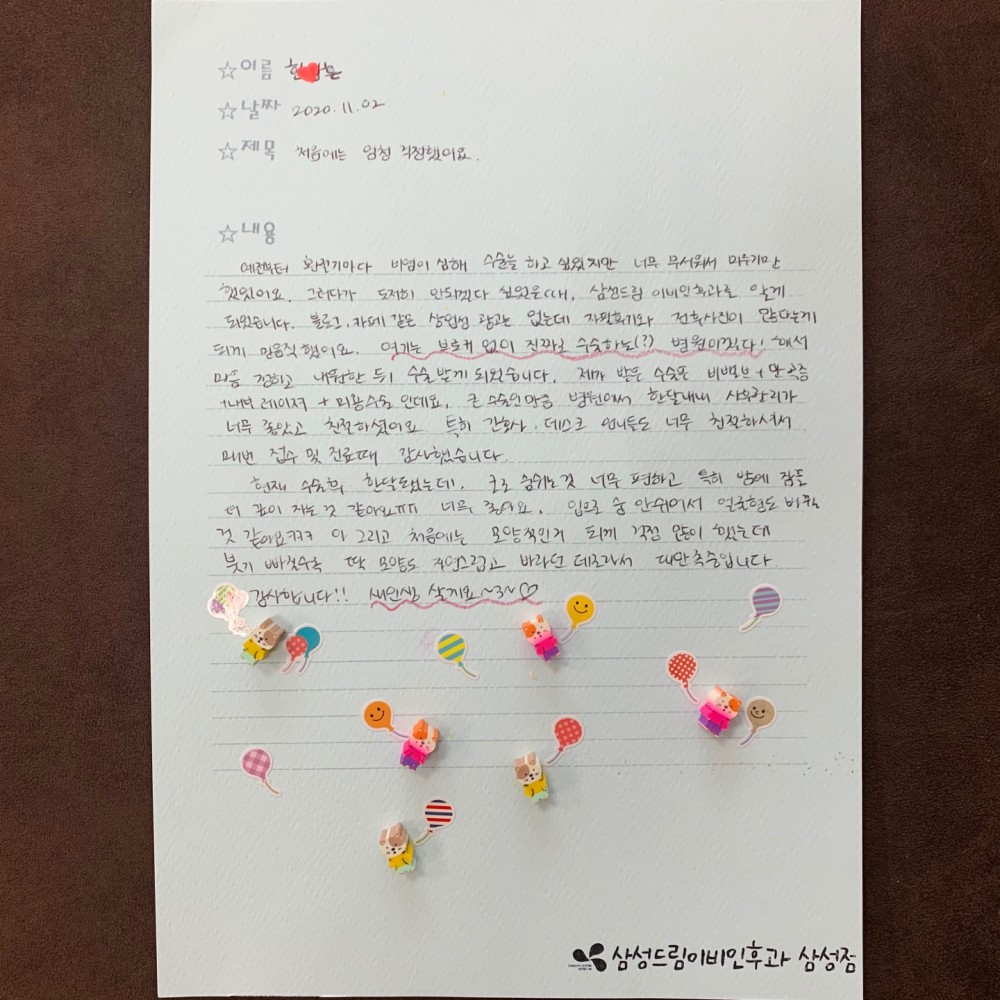 ☆이름 한
☆날짜 2020.11.02
☆제목 처음에는 엄청 걱정했어요.
☆내용
예전부터 환절기마다 비염이 심해 수술을 하고 싶었지만 너무 무서워서 미루기만
했었어요. 그러다가 도저히 안되겠다 싶었을때, 삼성드림 이비인후과를 알게
되었습니다. 블로그, 카페 같은 상업성 광고는 없는데 자필후기와 전후사진이 많다는게
되게 믿음직했어요. 여기는 브로커 없이 진짜로 수술하는(?) 병원이겠다! 해서
마음 정하고 내원한 뒤 수술받게 되었습니다. 제가 받은 수술은 비밸브 + 만곡증
+ 레이저 + 미용수술 인데요. 큰 수술인만큼 병원에서 한달내내 사후관리가
너무 좋았고 친절하셨어요 특히 간호사, 데스크 언니들도 너무 친절하셔서
매번 접수 및 진료때 감사했습니다.
현재 수술후 한달됐는데, 코로 숨쉬는 것 너무 편하고 특히 밤에 잠들
더 깊이 자는 것 같아요ㅠㅠ 너무 좋아요. 입으로 숨 안쉬어서 얼굴형도 바뀌는
것 같아요ㅋㅋㅋ 아 그리고 처음에는 모양적인거 되게 걱정 많이 했는데
붓기 빠질수록 딱 모양도 자연스럽고 바라던 대로라서 대만족중입니다
감사합니다!! 새인생 살게요~3~♡
삼성드림이비인후과 삼성점